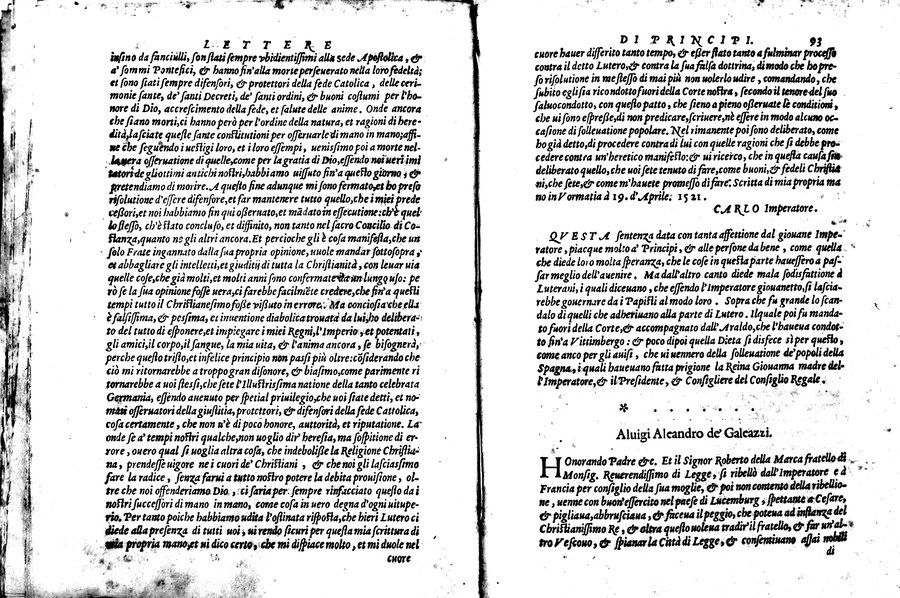 LETTERE
insino da fanciulli, son stati sempre vbidientissimi alla sede Apostolica, &
a' sommi Pontefici, & hanno fin'alla morte perseuerato nella loro fedeltà;
et sono stati sempre difensori, et protettori della fede Catolica, delle ceri-
monie sante, de' santi Decreti, de' santi ordini, & buoni costumi per l'ho-
nore di Dio, accrescimento della fede, et salute delle anime. Onde ancora
che siano morti, ci hanno però per l'ordine della natura, et ragioni di here-
dità, lasciate queste sante constitutioni per osseruarle di mano in mano; affi-
ne che seguendo i uestigi loro, et i loro essempi, uenissimo poi a morte nel-
la uera osseruatione di quelle, come per la gratia di Dio, essendo noi ueri imi
tatori de gli ottimi antichi nostri, habbiamo uissuto fin'a questo giorno; &
pretendiamo di morire. A questo fine adunque mi sono fermato, et ho preso
risolutione d'essere difensore, et far mantenere tutto quello, che i miei prede
cessori, et noi habbiamo fin qui osseruato, et mãdato in essecutione: ch'è quel
lo stesso, ch'è stato conclusо, et diffinito, non tanto nel sacro Concilio di Co-
stanza, quanto ne gli altri ancora. Et percioche gli è cosa manifesta, che un
solo Frate ingannato dalla sua propria opinione, uuole mandar sottosopra,
et abbagliare gli intelletti, et giuditij di tutta la Christianità, con leuar uia
quelle cose, che già molti, et molti anni sono confermate da un lungo uso: pe
rò se la sua opinione fosse uera, ci sarebbe facil mẽte credere, che fin'a questi
tempi tutto il Christianesimo fosse vissuto in errore. Ma conciosia che ella
è falsissima, & pessima, et inuentione diabolica trouata da lui, ho delibera-
to del tutto di esponere, et impiegare i miei Regni, l'Imperio, et potentati,
gli amici, il corpo, il sangue, la mia uita, & l'anima ancora, se bisognerà,
perche questo tristo, et infelice principio non passi più oltre: cõsiderando che
ciò mi ritornarebbe a troppo gran disonore, & biasimo, come parimente ri
tornarebbe a uoi stessi, che sete l'Illustrissima natione della tanto celebrata
Germania, essendo auenuto per spetial priuilegio, che uoi siate detti, et no-
mati osseruatori della giustitia, protettori, & difensori della fede Cattolica,
cosa certamente, che non u'è di poco honore, auttorità, et riputatione. La
onde se a' tempi nostri qualche, non uoglio dir' heresia, ma sospitione di er-
rore, ouero qual si uoglia altra cosa, che indebolisse la Religione Christia-
na, prendesse uigore ne i cuori de' Christiani, & che noi gli lasciassimo
fare la radice, senza farui a tutto nostro potere la debita prouisione, ol-
tre che noi offenderiamo Dio, ci saria per sempre rinfacciato questo da i
nostri successori di mano in mano, come cosa in uero degna d'ogni uitupe-
rio. Per tanto poiche habbiamo udita l'ostinata risposta, che hieri Lutero ci
diede alla presenza di tutti uoi, ui rendo sicuri per questa mia scrittura di
mia propria mano, et ui dico certo, che mi dispiace molto, et mi duole nel
cuore
DI PRINCIPI. 93
cuore hauer differito tanto tempo, & esser stato tanto a fulminar processo
contra il detto Lutero, & contra la sua falsa dottrina, di modo che ho pre-
so risolutione in me stesso di mai più non uolerlo udire, comandando, che
subito egli sia ricondotto fuori della Corte nostra, secondo il tenore del suo
saluocondotto, con questo patto, che sieno a pieno osseruate le conditioni,
che ui sono espresse, di non predicare, scriuere, nè essere in modo alcuno oc-
casione di solleuatione popolare. Nel rimanente poi sono deliberato, come
ho già detto, di procedere contra di lui con quelle ragioni che si debbe pro-
cedere contra un'heretico manifesto: & ui ricerco, che in questa causa sia
deliberato quello, che uoi sete tenuto di fare, come buoni, & fedeli Christia
ni, che sete, & come m'hauete promesso di fare. Scritta di mia propria ma
no in Vormatia à 19. d'Aprile. 1521.
CARLO Imperatore.
QVESTA sentenza data con tanta affettione dal giouane Impe-
ratore, piacque molto a' Principi, & alle persone da bene, come quella
che diede loro molta speranza, che le cose in questa parte hauessero a pas-
sar meglio dell'auenire. Ma dall'altro canto diede mala sodisfattione à
Luterani, i quali diceuano, che essendo l'Imperatore giouanetto, si lascia-
rebbe gouernare da i Papisti al modo loro. Sopra che fu grande lo scan-
dalo di quelli che adheriuano alla parte di Lutero. Il quale poi fu manda-
to fuori della Corte, & accompagnato dall'Araldo, che l'haueua condot-
to fin'a Vittimbergo: & poco dipoi quella Dieta si disfece sì per questo,
come anco per gli auisi, che ui uennero della solleuatione de' popoli della
Spagna, i quali haueuano fatta prigione la Reina Giouanna madre del-
l'Imperatore, & il Presidente, & Consigliere del Consiglio Regale.
*
Aluigi Aleandro de' Galeazzi.
HOnorando Padre &c. Et il Signor Roberto della Marca fratello di
Monsig. Reuerendissimo di Legge, si ribellò dall'Imperatore e à
Francia per consiglio della sua moglie, & poi non contento della ribellio-
ne, uenne con buon'essercito nel paese di Lucemburg, spettante a Cesare,
& pigliaua, abbrusciaua, & faceua il peggio, che poteua ad instanza del
Christianissimo Re, & oltra questo uoleua tradir' il fratello, & far' un'al-
tro Vescouo, & spianar la Città di Legge, & consentiuano assai nobili
di